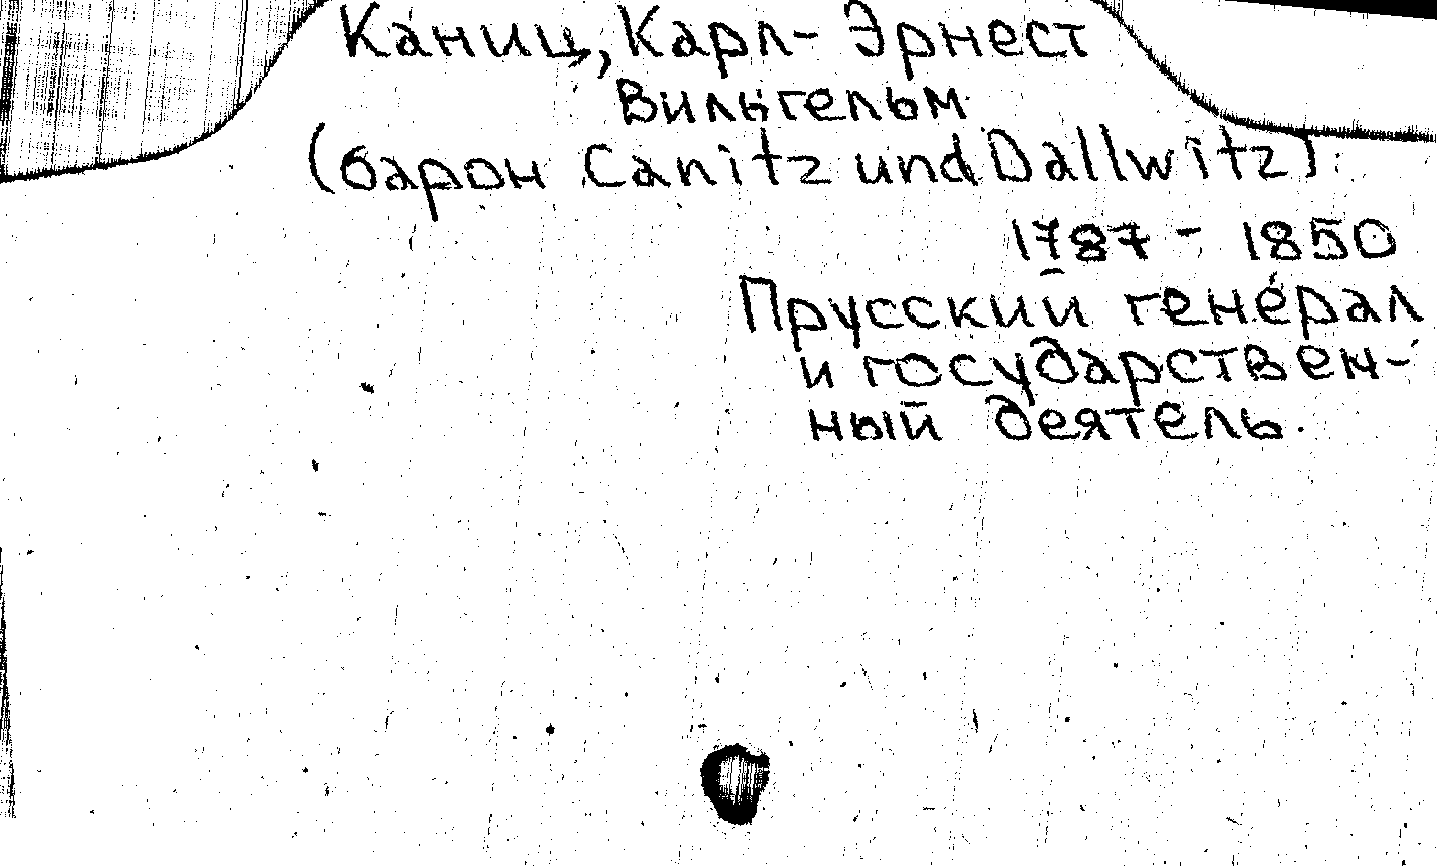 Каниц, Карл- Эрнест
Вильгельм
(барон Canitz und Dallwitz).
1787 - 1850
Прусский генерал
и государствен-
ный деятель.